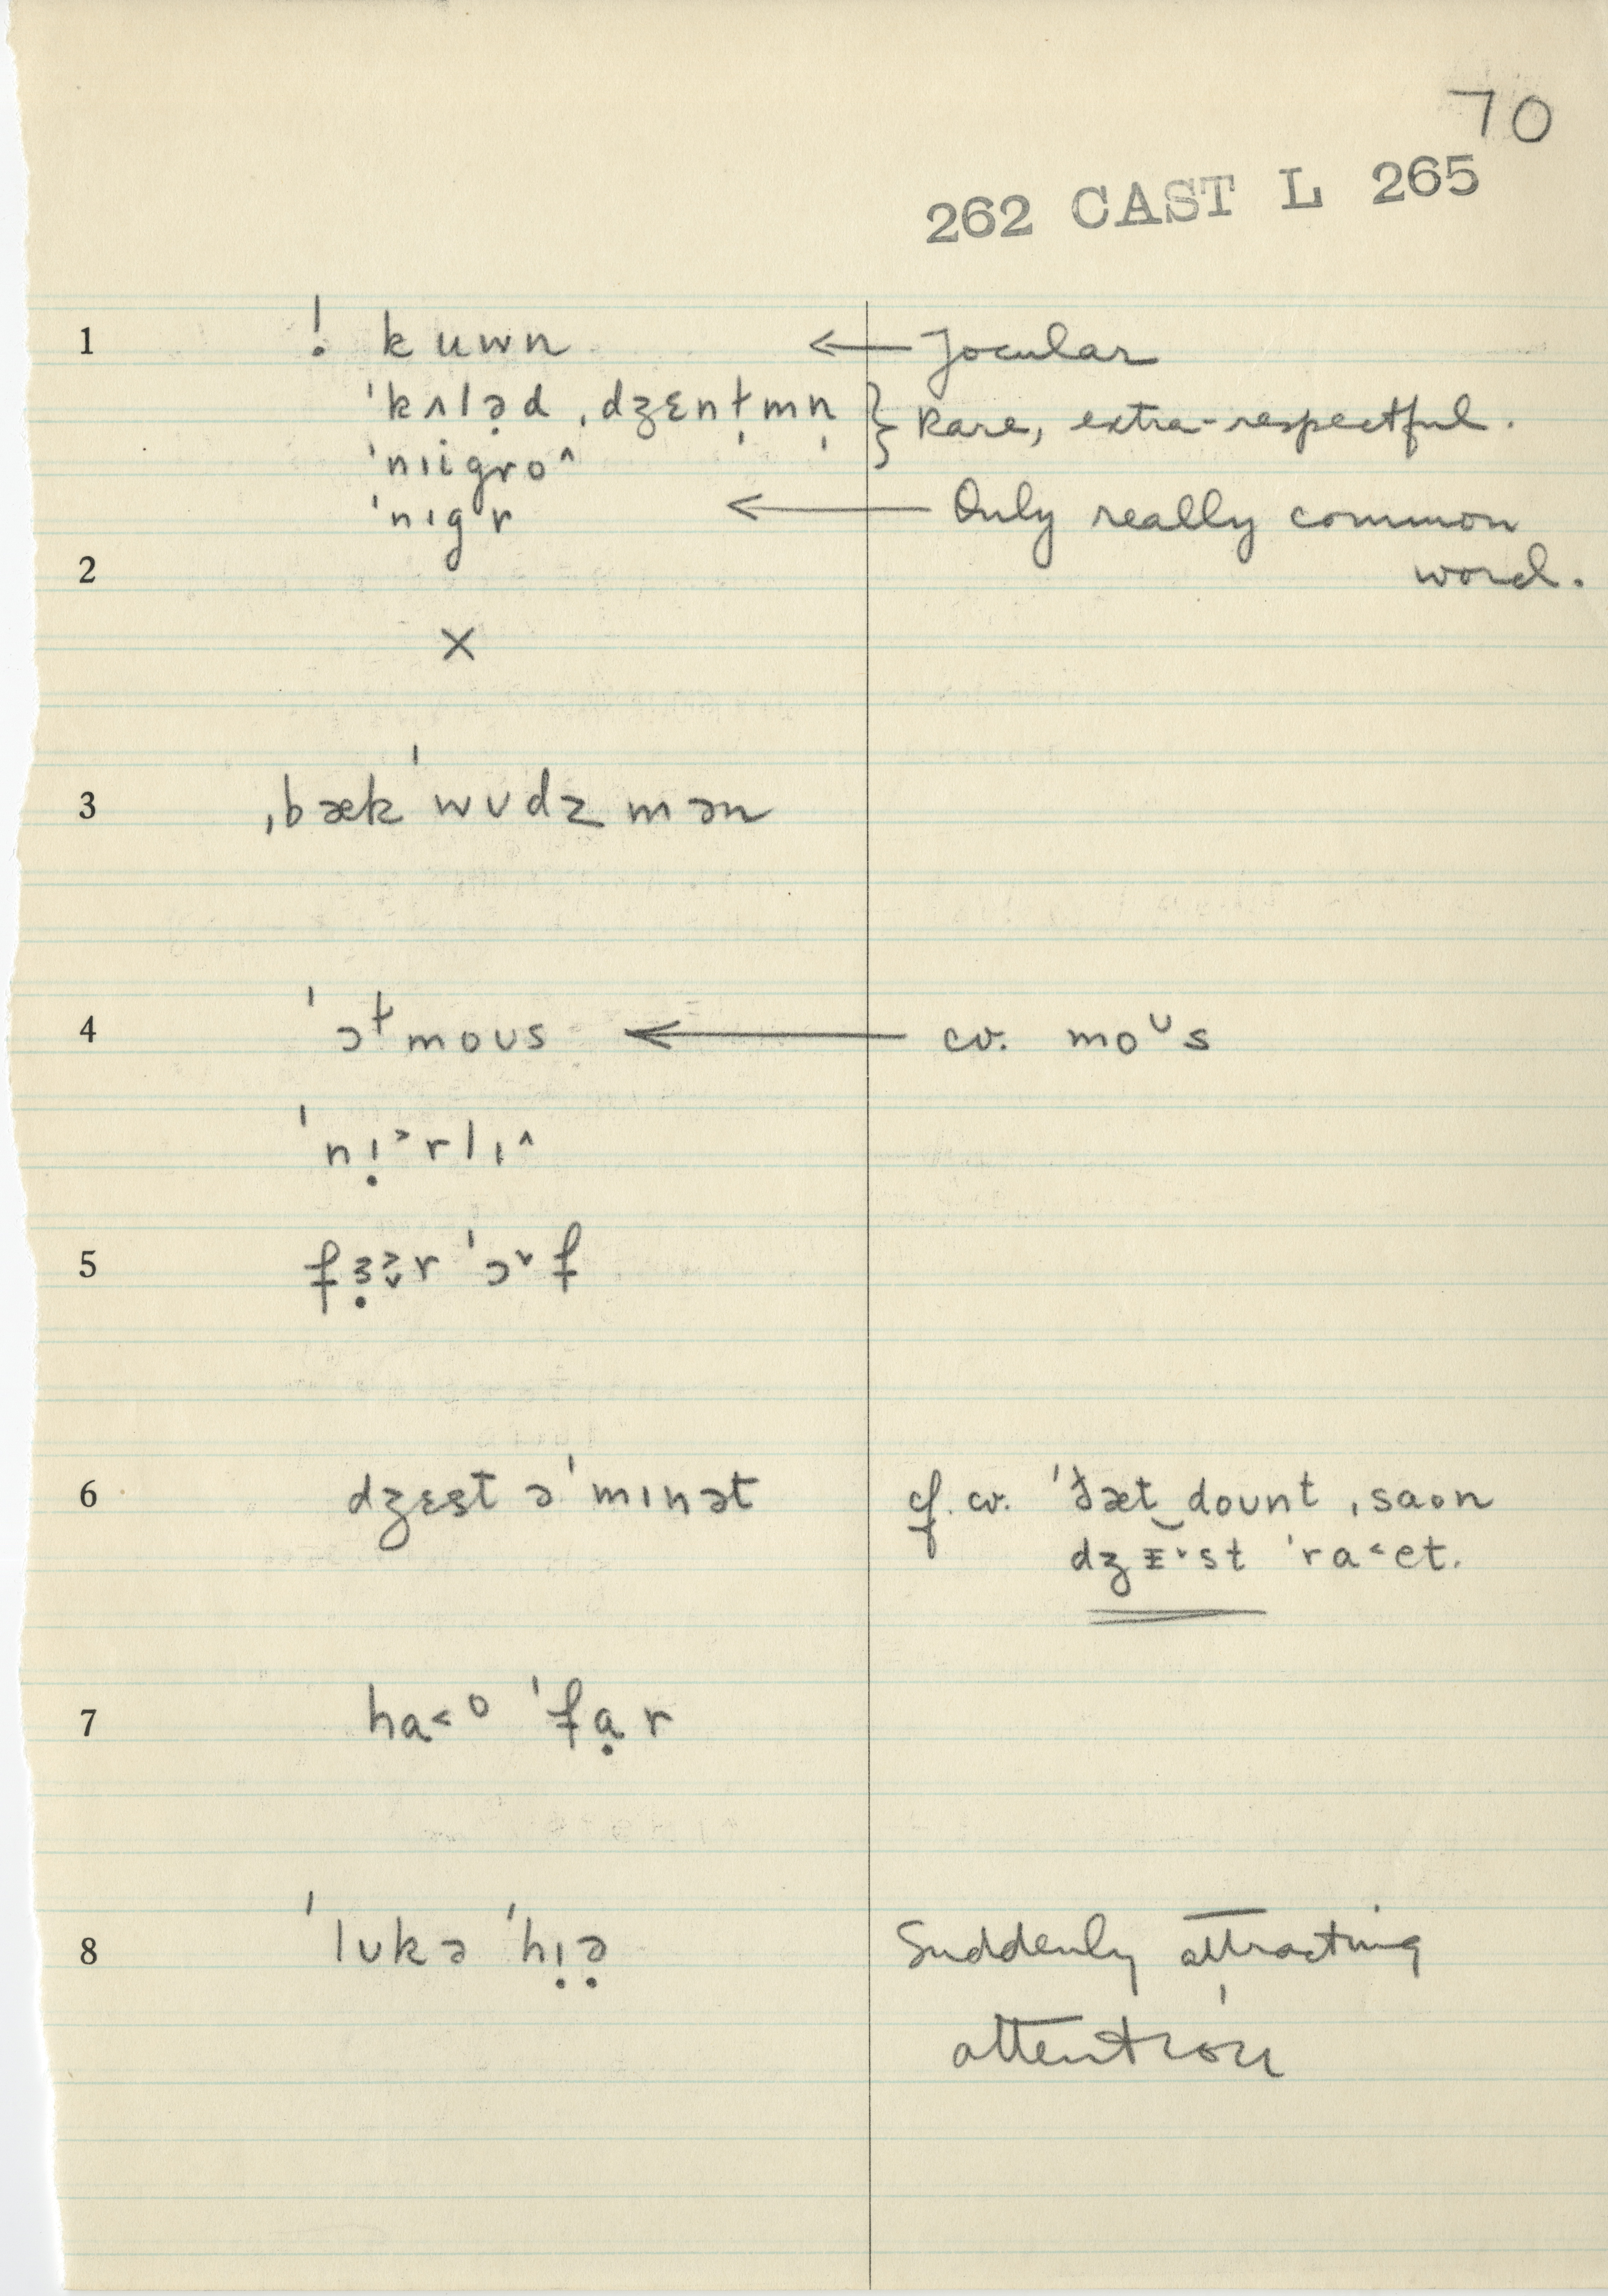 70
262 CAST L 265
1 ! kuwn ← Jocular
ˈkʌlə̣d ˌdʒɛnt̬mn̩ } Rare, extra-respectful.
ˈnɪigro^
ˈnɪgər ← Only really common
2 word.
×
3 ˌbækˈwʊdzmən
4 ˈɔtmoʊs ← cv. moᶷs
ˈnị˃rlɪ^
5 fɜ̣˃r ˈɔ˅f
6 dʒɛst ə ˈmɪnət cf. cv. ˈðæt‿doʊnt ˌsaʊn
dʒɪ˅st ˈra˂et.
7 ha˂ᶷ ˈfɑ̣r
8 ˈlʊkə ˈhị̣ə̣ Suddenly attracting
attention